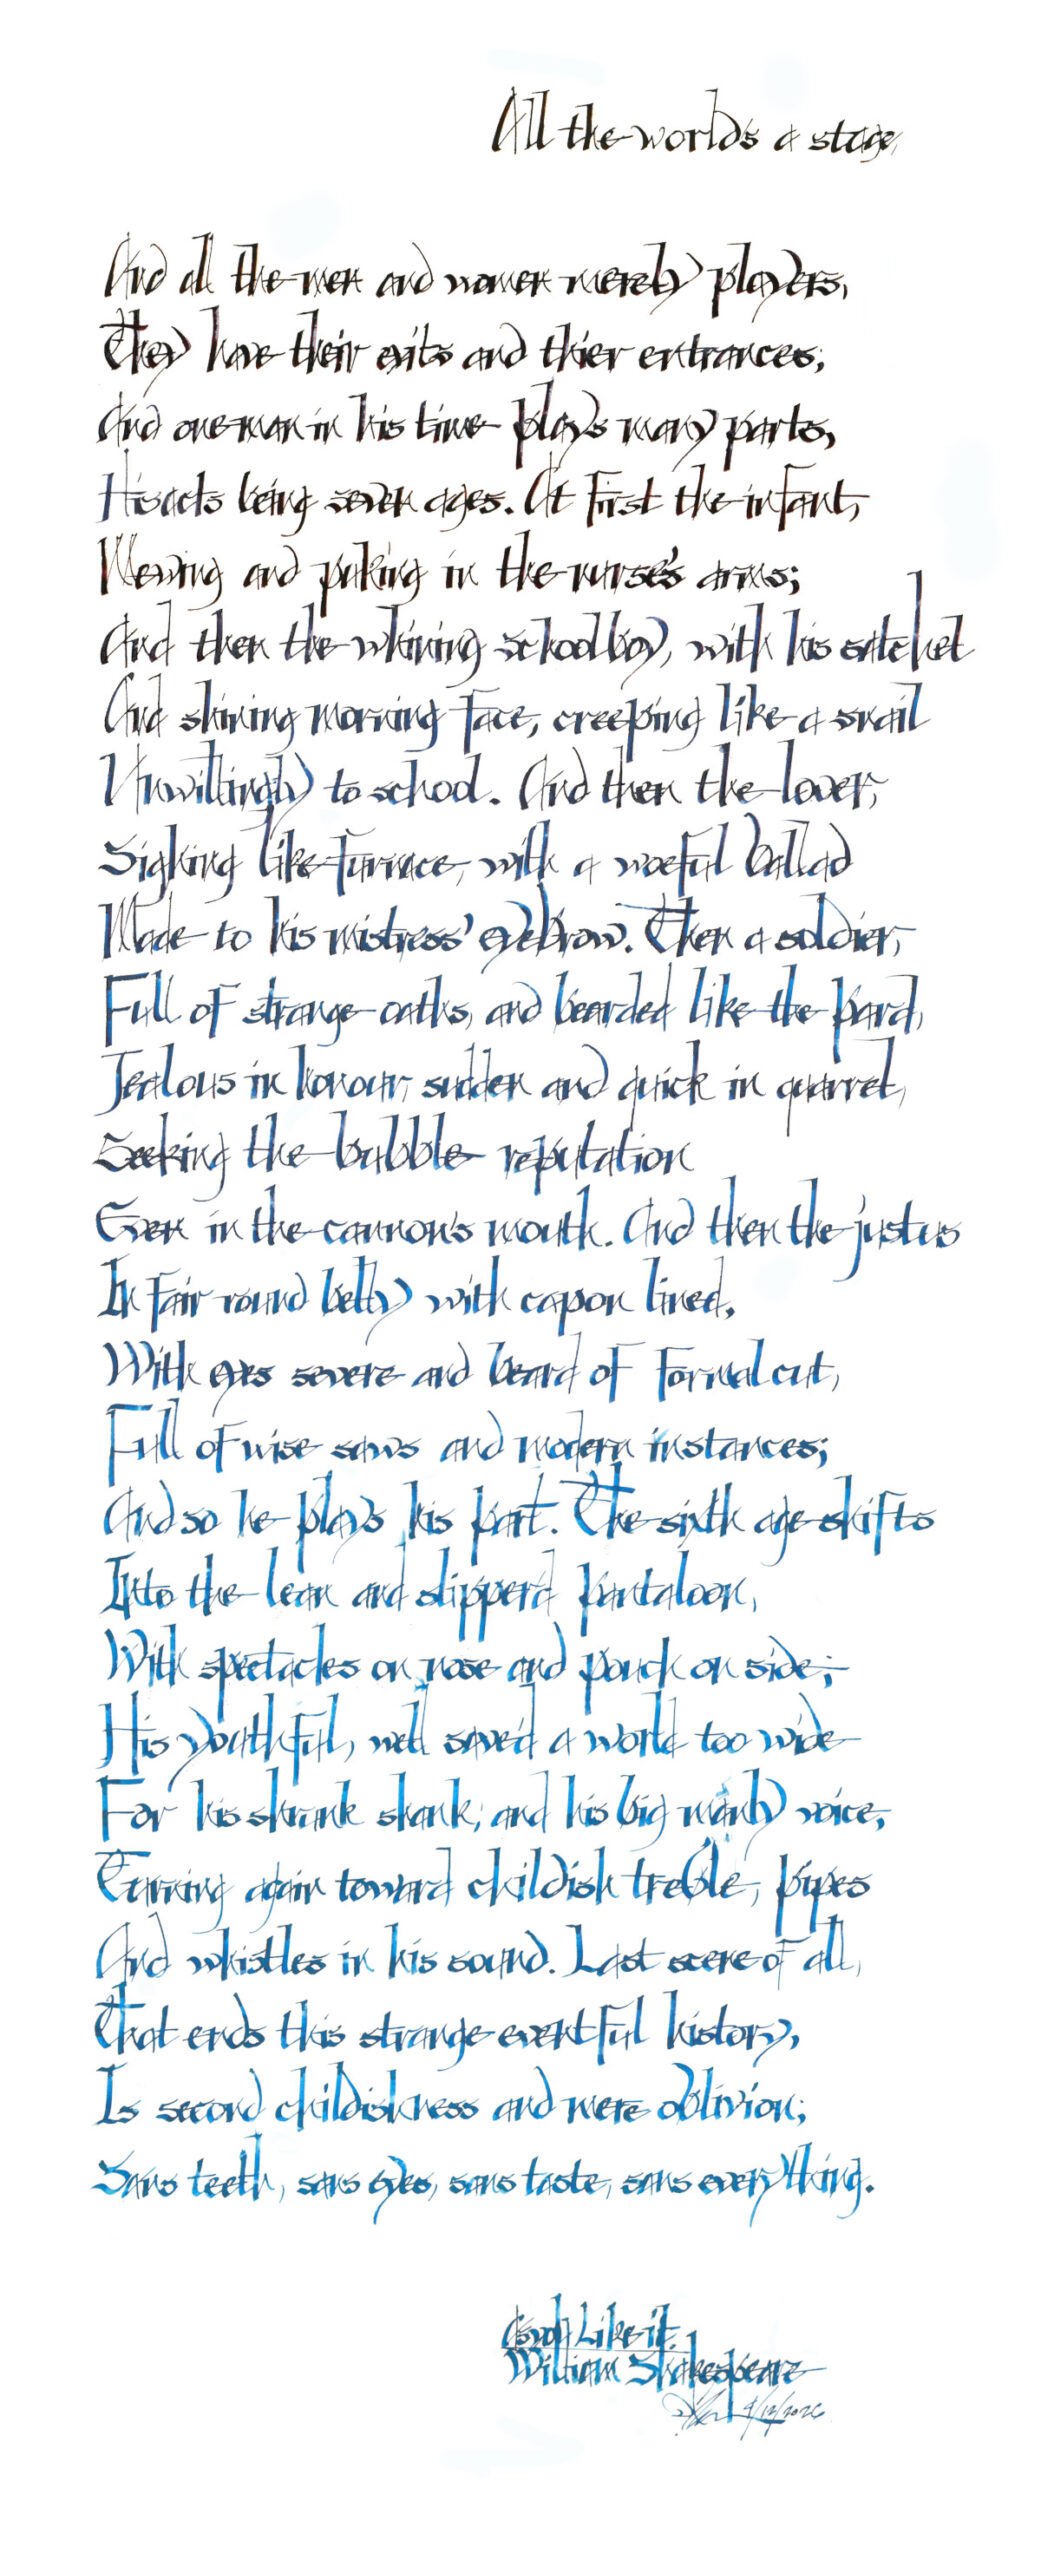 All the world's a stage,
And all the men and women merely players,
They have their exits and thier entrances;
And one man in his time plays many parts,
His acts being seven ages. At first the infant,
Mewing and puking in the nurse's arms;
And then the whining schoolboy, with his satchel
And shining morning face, creeping like a snail
Unwillingly to school. And then the lover,
Sighing like furnace, with a woeful ballad
Made to his mistress' eyebrow. Then a soldier,
Full of strange oaths, and bearded like the pard,
Jealous in honour, sudden and quick in quarrel,
Seeking the bubble reputation
Even in the cannon's mouth. And then the justus
In fair round belly with capon lined,
With eyes severe and beard of formal cut,
Full of wise saws and modern instances;
And so he plays his part. The sixth age shifts
Into the lean and slipper'd pantaloon,
With spectacles on nose and pouch on side;
His youthful, well saved a world too wide
For his shrunk shank; and his big manly voice,
Turning again toward childish treble, pipes
And whistles in his sound. Last scene of all,
That ends this strange eventful history,
Is second childishness and mere oblivion;
Sans teeth, sans eyes, sans taste, sans everything.
As you Like it.
William Shakespeare